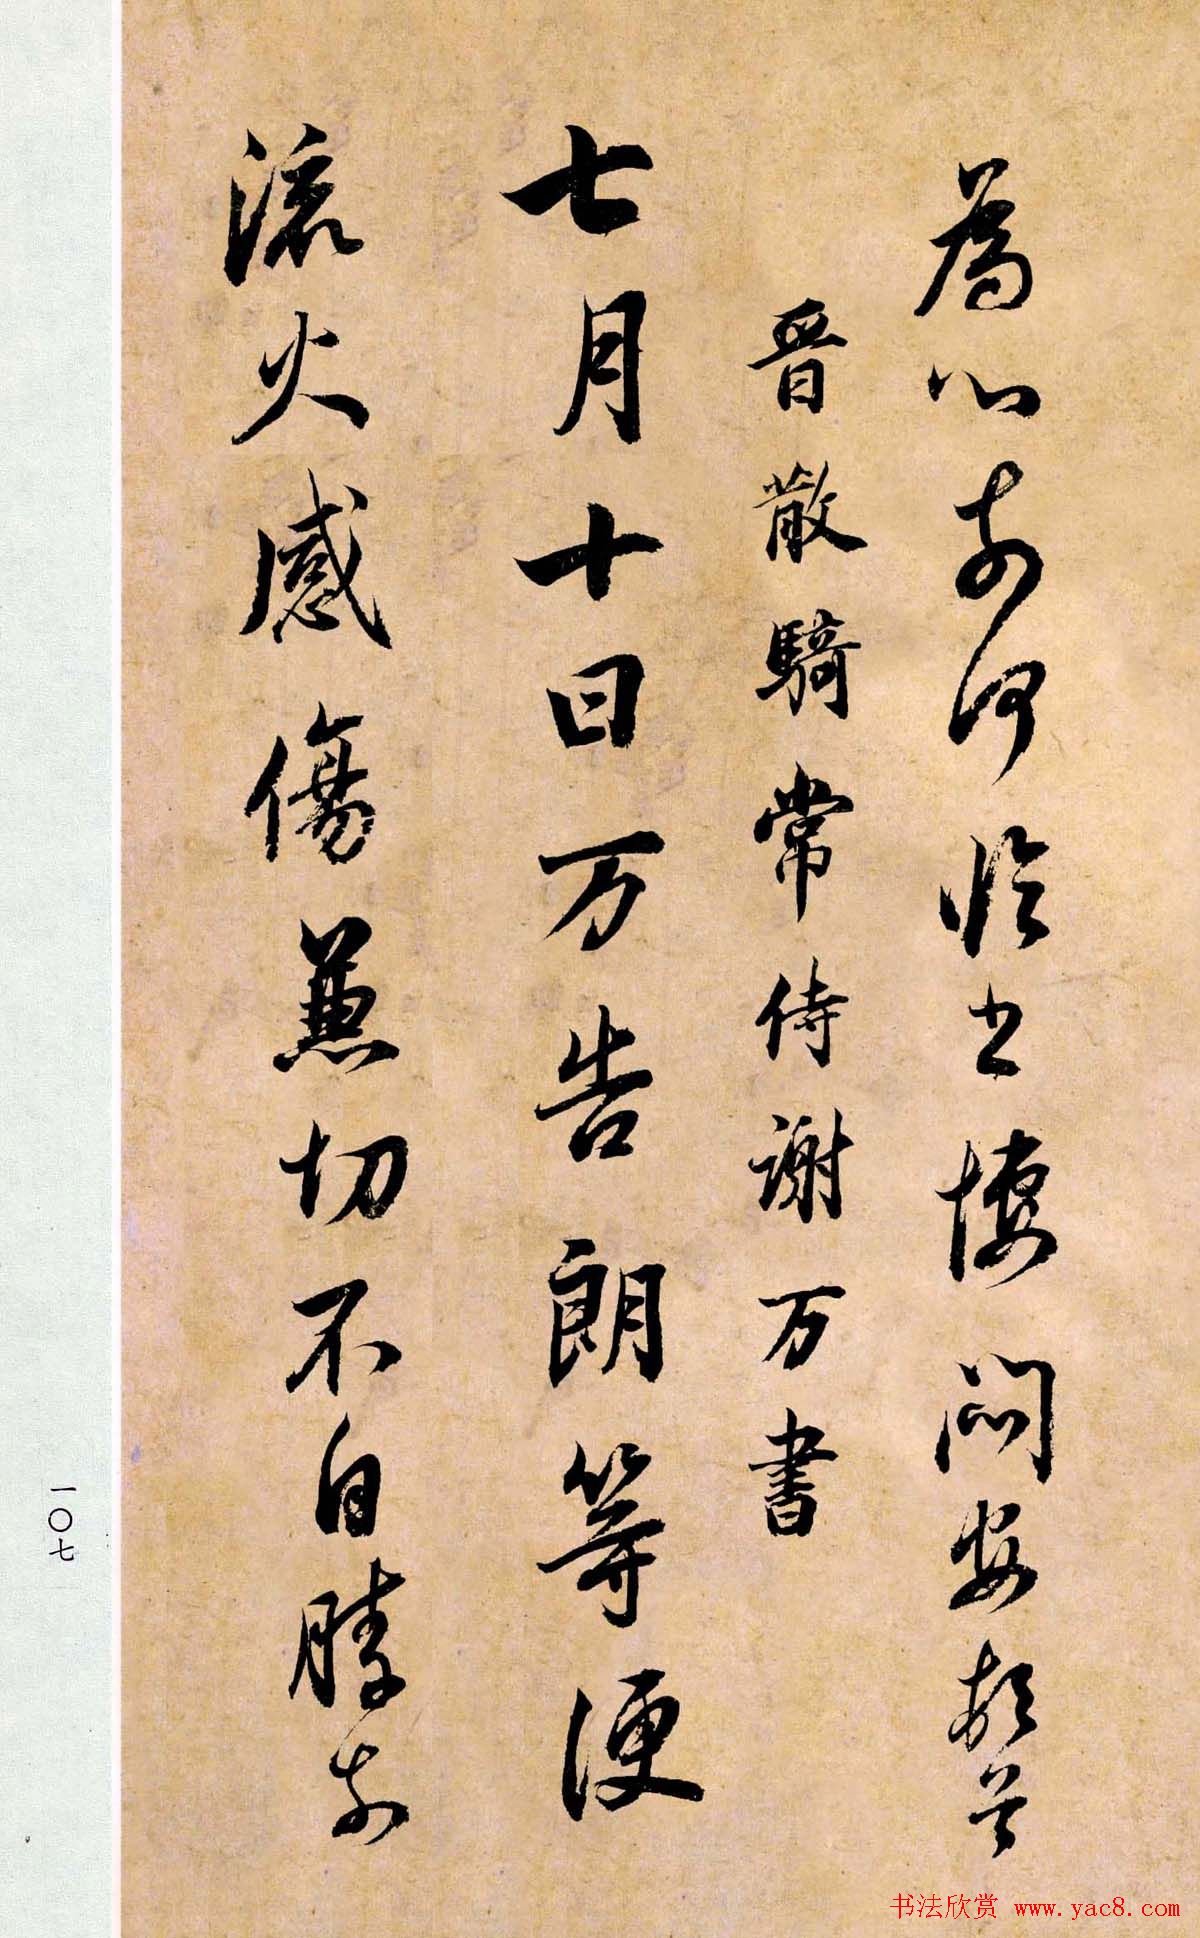 為心奈何臨書悽悶安頓首
晉散騎常侍謝万書
七月十日万告朗等便
流火感傷兼切不自勝奈
一〇七
书法欣赏 www.yac8.com